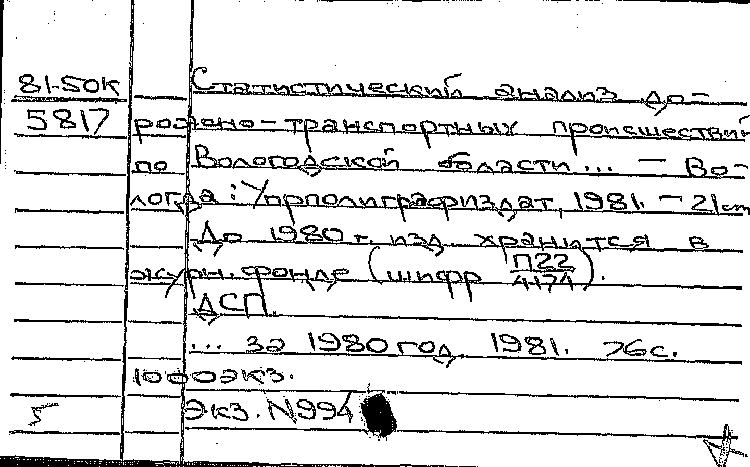 81-50К
5817
Статистический анализ до-
рожно-транспортных происшествий
по Вологодской области... — Во-
логда: Упрполиграфиздат, 1981. — 21 см
До 1980 г. изд. хранится в
журн. фонде (шифр П22/4174).
ДСП.
... за 1980 год. 1981. 76 с.
1000 экз.
Экз. N994